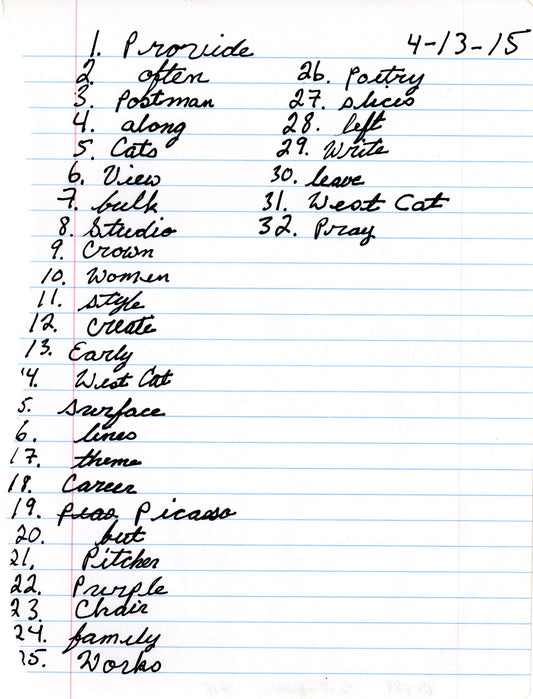 4-13-15
1. Provide
2. often
3. Postman
4. along
5. Cats
6. View
7. bulk
8. Studio
9. Crown
10. Women
11. style
12. create
13. Early
14. West Cat
5. Surface
6. lines
17. theme
18. Career
19. Picasso
20. but
21. Pitcher
22. Purple
23. Chair
24. family
25. Works
26. Poetry
27. slices
28. left
29. Write
30. leave
31. West Cat
32. Pray